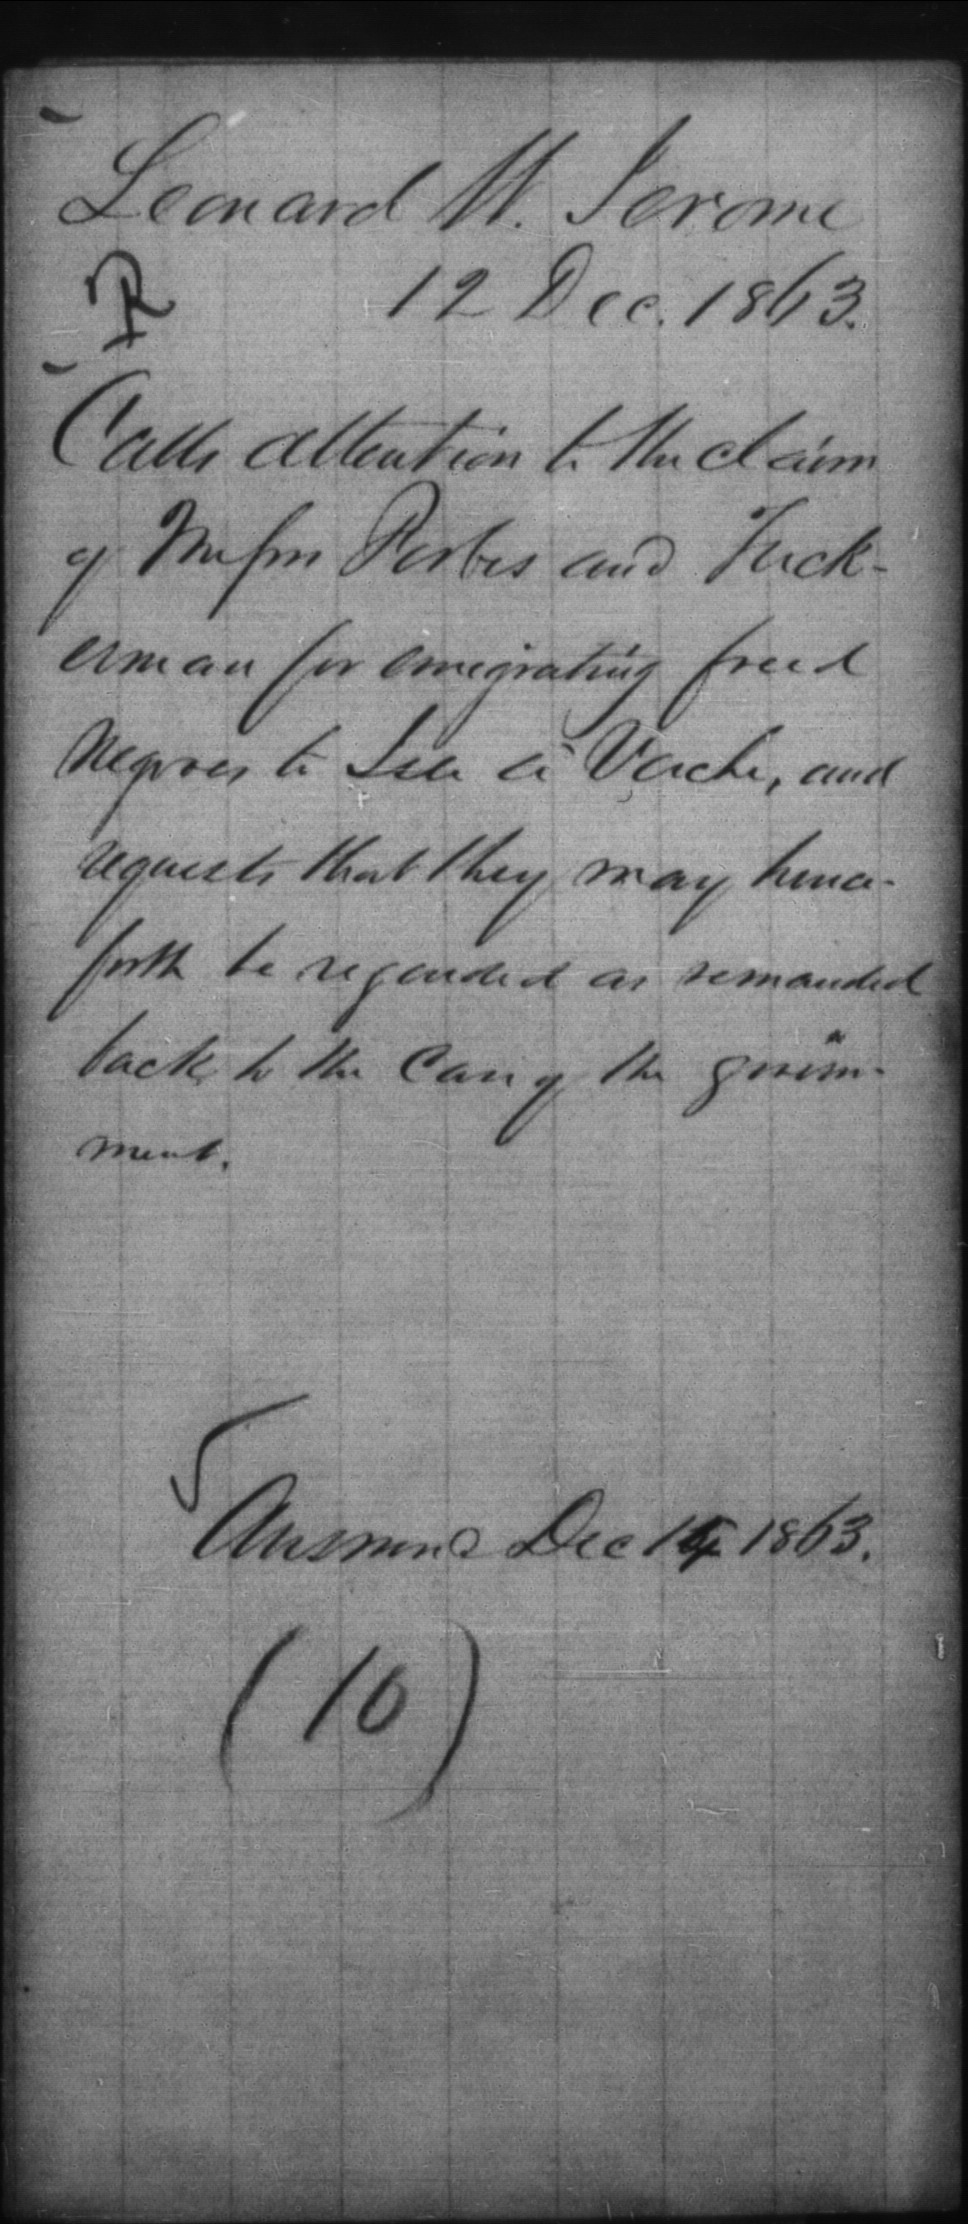 Leonard W. Jerome
R 12 Dec. 1863.
Calls attention to the claim
of Messrs Forbes and Tuck-
erman for emigrating freed
Negroes to Isle a' Vache, and
requests that they may hence-
forth be regarded as remanded
back to the care of the govern-
ment.
Answered Dec 14 1863.
(10)